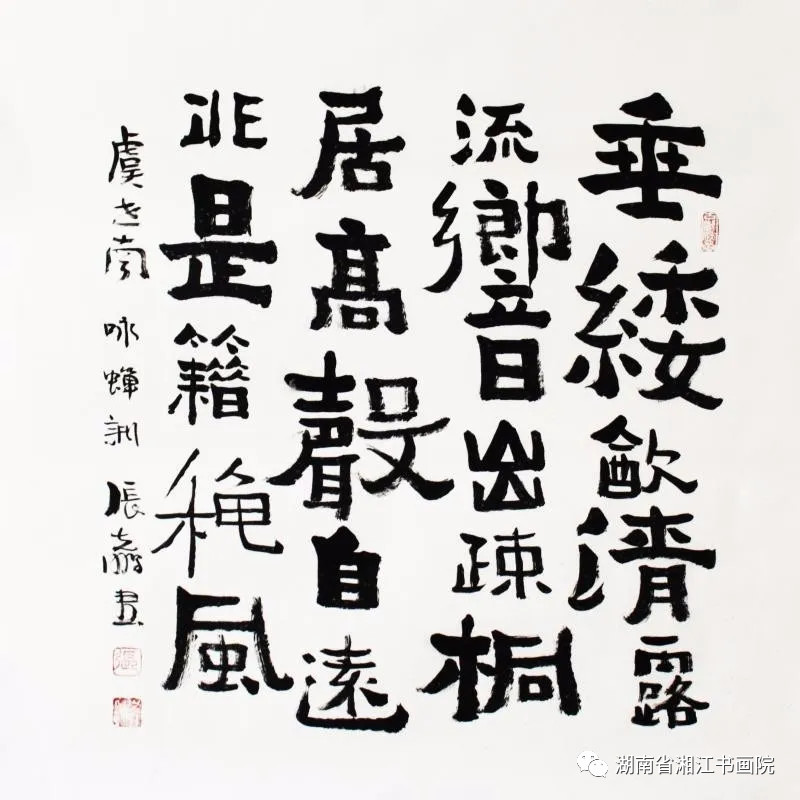 垂緌飲清露
流響出疎桐
居高聲自遠
非是籍穐風
虞世南 咏蟬 張 書
湖南省湘江书画院